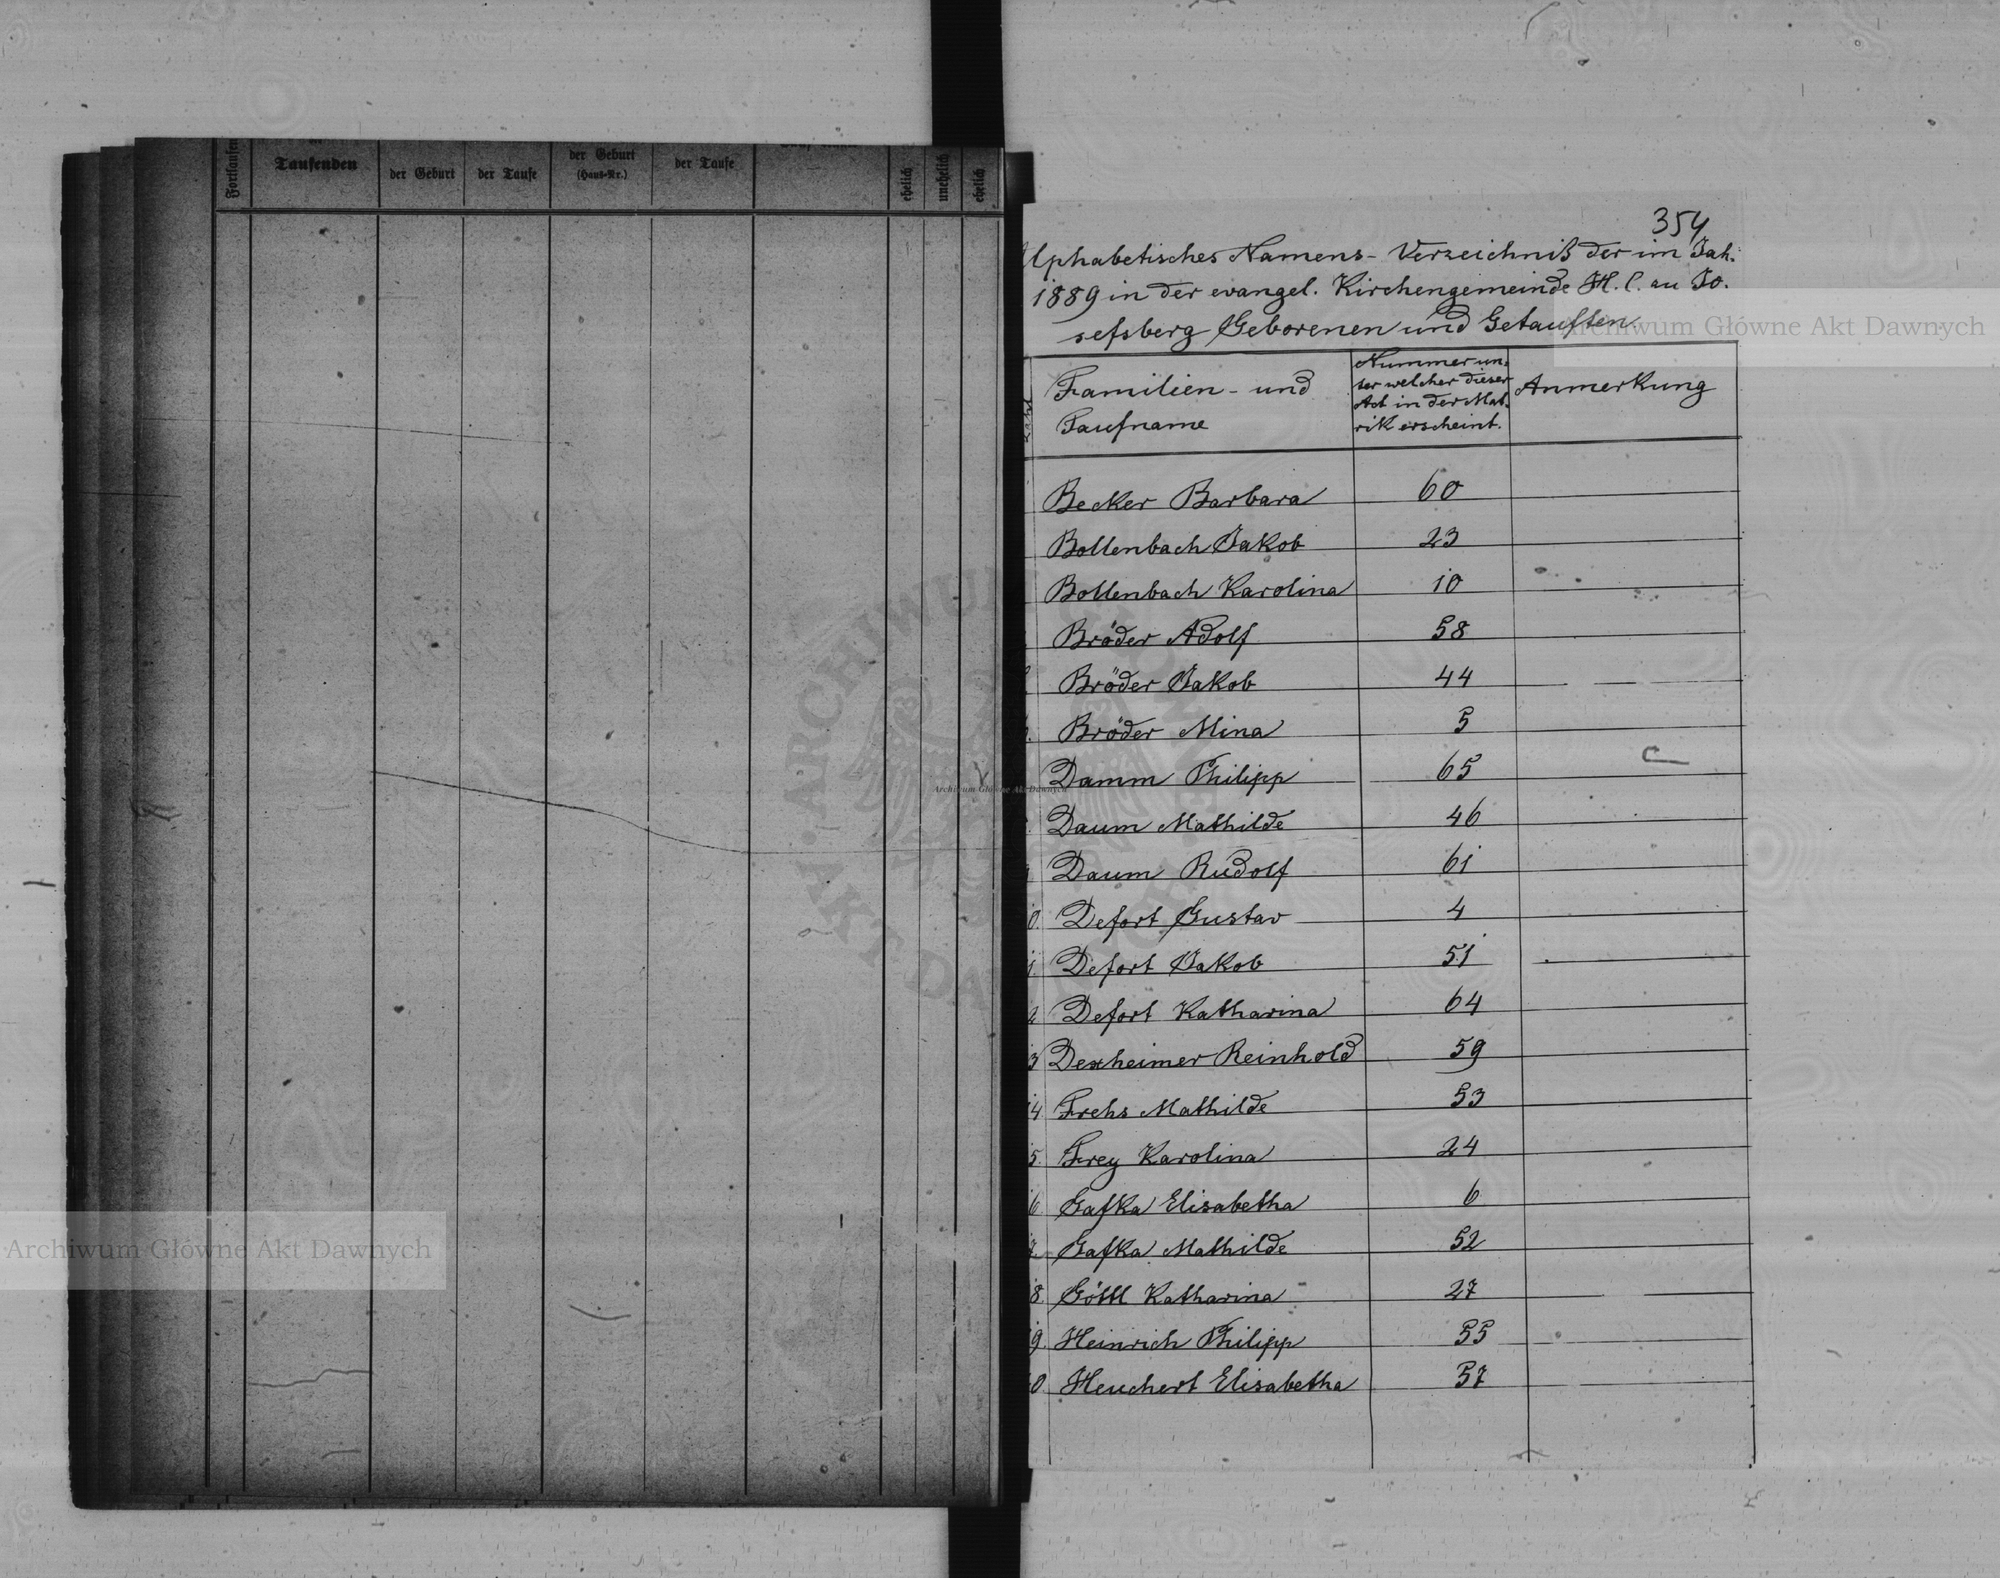 Taufenden
der Geburt
der Taufe
der Geburt
(Haus-Nr.)
der Taufe
ehelich
unehelich
ehelich
354
lphabetisches Namens-Verzeichniß der im Jah:
1889 in der evangel. Kirchengemeinde H. C. zu Jo.
sefsberg Geborenen und Getauften.
Archiwum Główne Akt Dawnych
Zahl
Familien- und Taufname
Nummer un-
ter welcher dieser
Act in der Mat-
rik erscheint.
Anmerkung
Becker Barbara 60
Bollenbach Jakob 23
Bollenbach Karolina 10
Bröder Adolf 58
Bröder Jakob 44
Bröder Mina 5
Damm Philipp 65
Archiwum Główne Akt Dawnych
Daum Mathilde 46
Daum Rudolf 61
0. Defort Gustav 4
1 Defort Jakob 51
2 Defort Katharina 64
3 Dexheimer Reinhold 59
4 Frehs Mathilde 53
5. Frey Karolina 24
6 Gafka Elisabetha 6
7. Gafka Mathilde 52
8. Göttl Katharina 27
9. Heinrich Philipp 55
0 Heuchert Elisabetha 57
Archiwum Główne Akt Dawnych